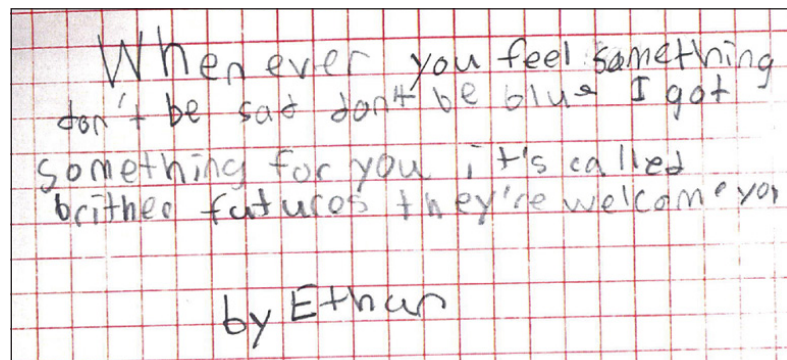 Whenever you feel something
don't be sad don't be blue I got
something for you it's called
brither futures they're welcome you
by Ethan